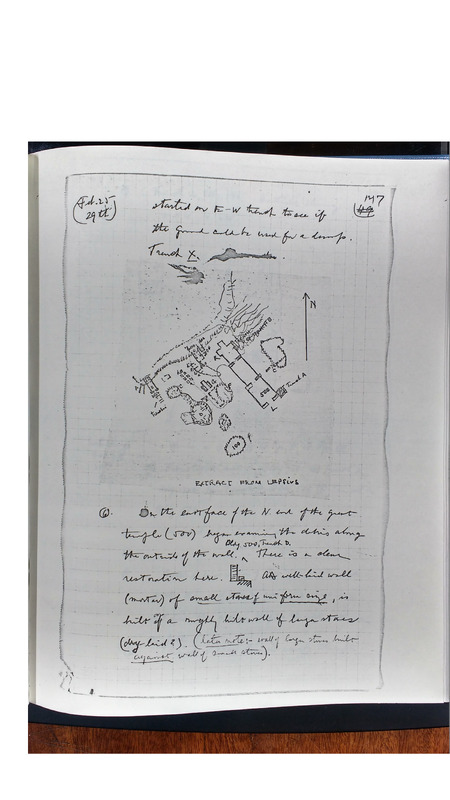 Feb. 25
29th
147
49
started on E-W trench to see if
the ground could be used for a dump.
Trench X.
N
Trench A
L
500
100
EXTRACT FROM LEPSIUS
6. On the east face of the N end of the great
temple (500) began examining the debris along
Bldg 500, Trench D.
the outside of the wall. ^ There is a clear
restoration here. A well-laid wall
(mortar) of small stones of uniform size, is
built off a roughly built wall of large stones
(dry-laid?). (later note:- wall of large stones built
against wall of small stones).